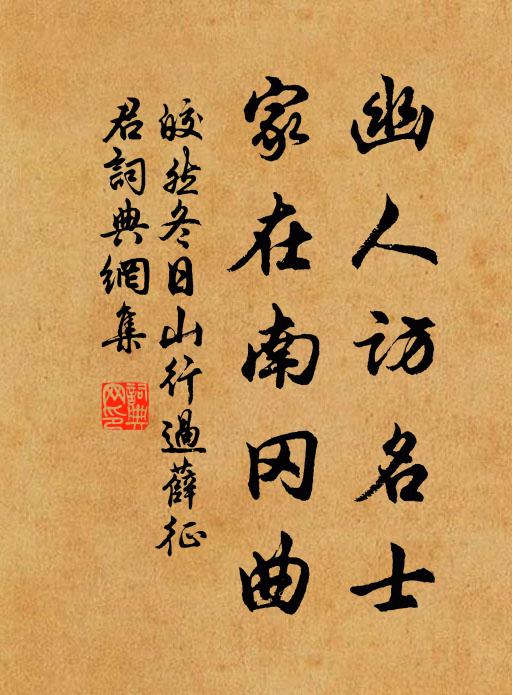 幽人访名士
家在南冈曲
皎然冬日山行過薛征
君詞典網集
詞典
网印